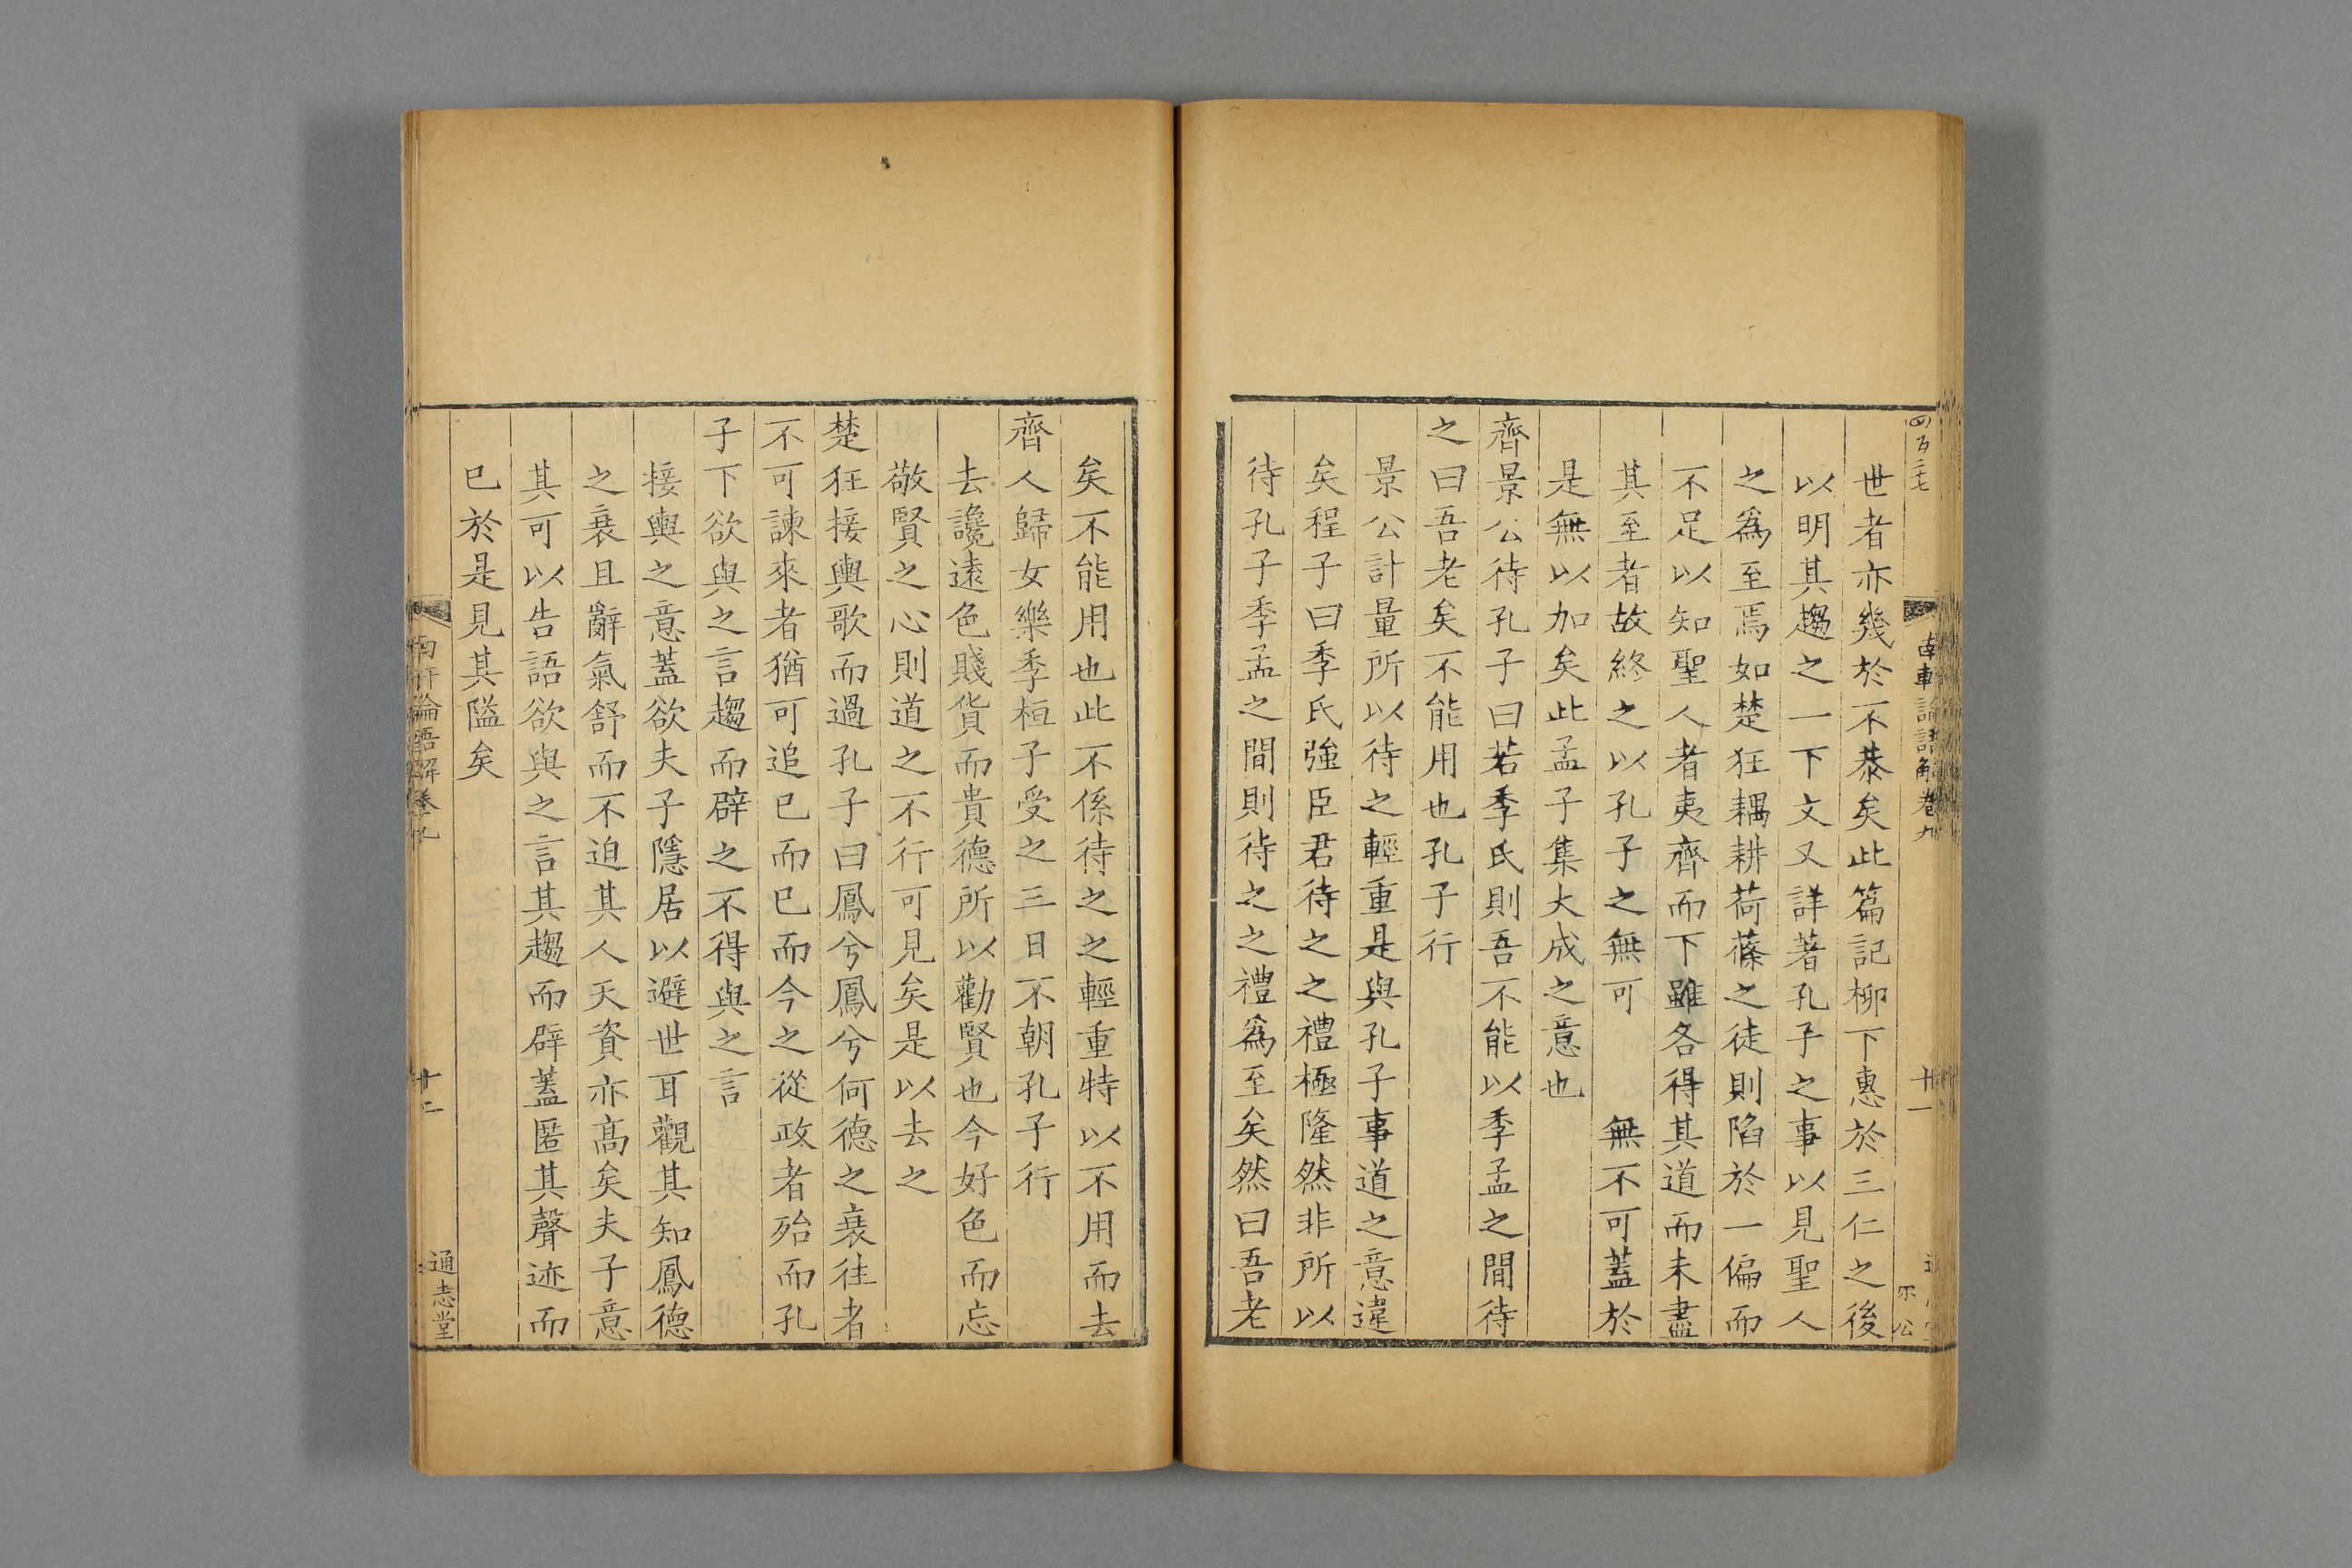 世者亦幾於不恭矣此篇記柳下惠於三仁之後
以明其趨之一下文又詳著孔子之事以見聖人
之爲至焉如楚狂耦耕荷蓧之徒則陷於一偏而
不足以知聖人者夷齊而下雖各得其道而未盡
其至者故終之以孔子之無可　無不可蓋於
是無以加矣此孟子集大成之意也
齊景公待孔子曰若季氏則吾不能以季孟之間待
之曰吾老矣不能用也孔子行
景公計量所以待之輕重是與孔子事道之意違
矣程子曰季氏強臣君待之之禮極隆然非所以
待孔子季孟之間則待之之禮爲至矣然曰吾老
矣不能用也此不係待之之輕重特以不用而去
齊人歸女樂季桓子受之三日不朝孔子行
去讒遠色賤貨而貴德所以勸賢也今好色而忘
敬賢之心則道之不行可見矣是以去之
楚狂接輿歌而過孔子曰鳳兮鳳兮何德之衰往者
不可諫來者猶可追已而已而今之從政者殆而孔
子下欲與之言趨而辟之不得與之言
接輿之意蓋欲夫子隱居以避世耳觀其知鳳德
之衰且辭氣舒而不迫其人天資亦高矣夫子意
其可以告語欲與之言其趨而辟蓋匿其聲迹而
已於是見其隘矣
南軒論語解卷九
十二
通志堂